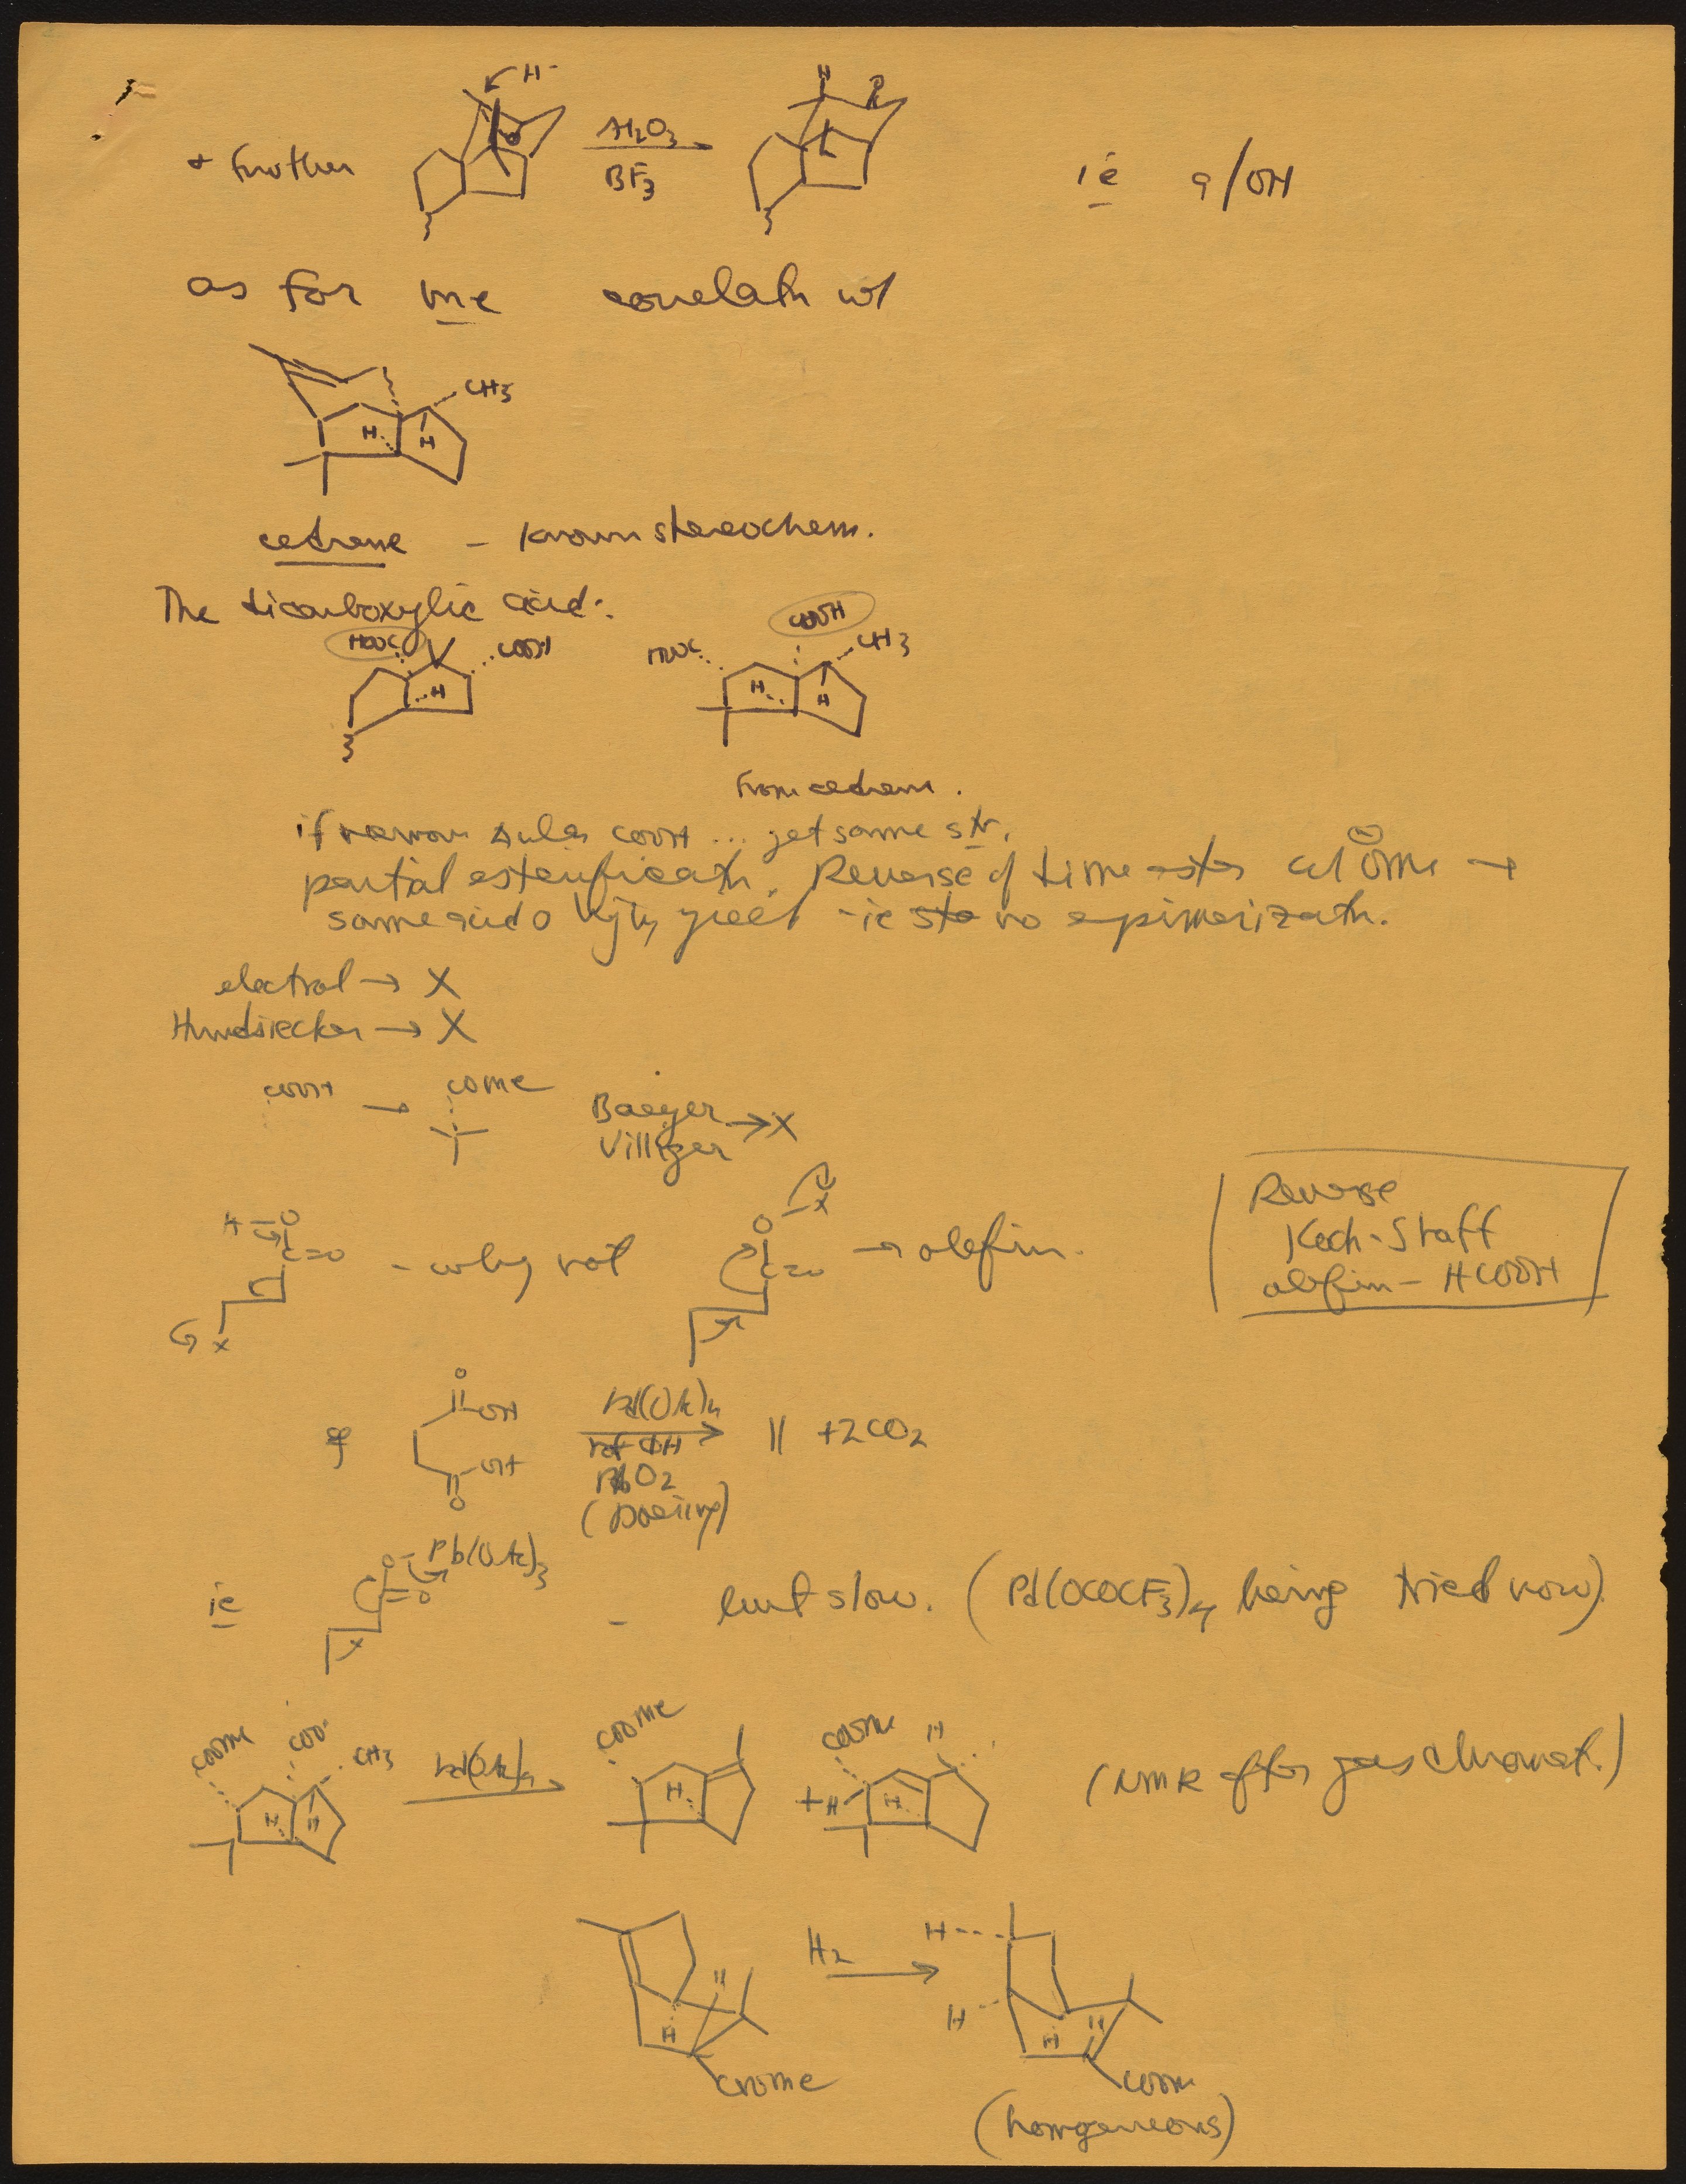 H⁻
+ further
Al₂O₃
BF₃
H
R
ie a/OH
as for me correlatn w/
CH₃
H
H
cedrene - known stereochem.
The dicarboxylic acid:
HOOC
COOH
H
HOOC
COOH
CH₃
H
H
From cedrene.
if remove COOH ... get same str.
partial esterificatn. Reverse of dime ester w/ OMe⊖ →
same acid yield - ie no epimerizatn.
electrol → X
Hunsdiecker → X
COOH → COMe
Baeyer
Villiger → X
H-O
C=O
X
- why not
O-X
C=O
→ olefin.
Reverse
Koch-Haaf
olefin - HCOOH
O
OH
OH
O
Pb(OAc)₄
ref ΦH
PbO₂
(Doering)
|| + 2CO₂
ie
O-Pb(OAc)₃
=O
- but slow. (Pd(OCOCF₃)₄ being tried now)
COOMe
COO·
CH₃
H
H
Pb(OAc)₄
COOMe
H
+
COOMe
H
H
H
(NMR after gas chromat.)
H
H
COOMe
H₂
H
H
H
H
COOMe
(homogeneous)